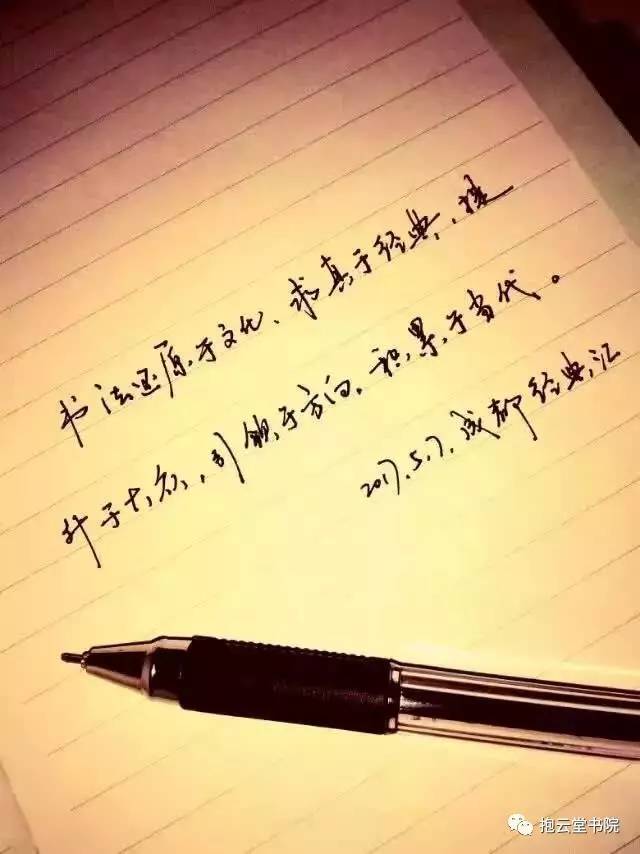 书法还原于文化、求真于经典、提
升于大众，引领于方向，积累于当代。
2017.5.7.成都经典汇
抱云堂书院